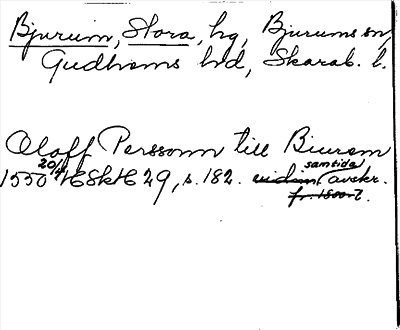 Bjurum, Stora, hg, Bjurums sn,
Gudhems hd, Skarab. l.
Oloff Perssonn till Biurem
1550 20/4 HSH 29, s. 182. samtida avskr.